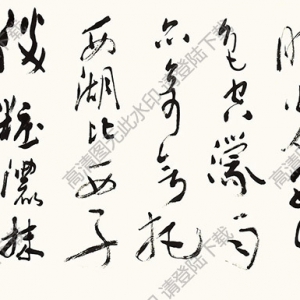 色空濛雨
亦奇欲把
西湖比西子
淡粧濃抹
高清图无此水印 请登陆下载